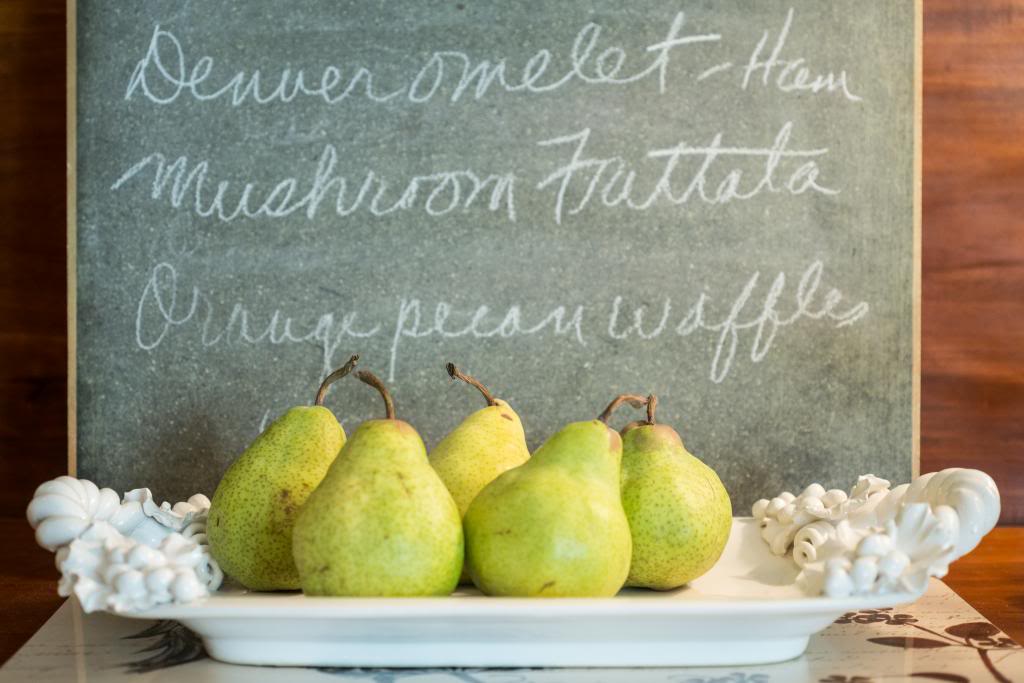 Denver omelet - Ham
Mushroom Frittata
Orange pecan waffles